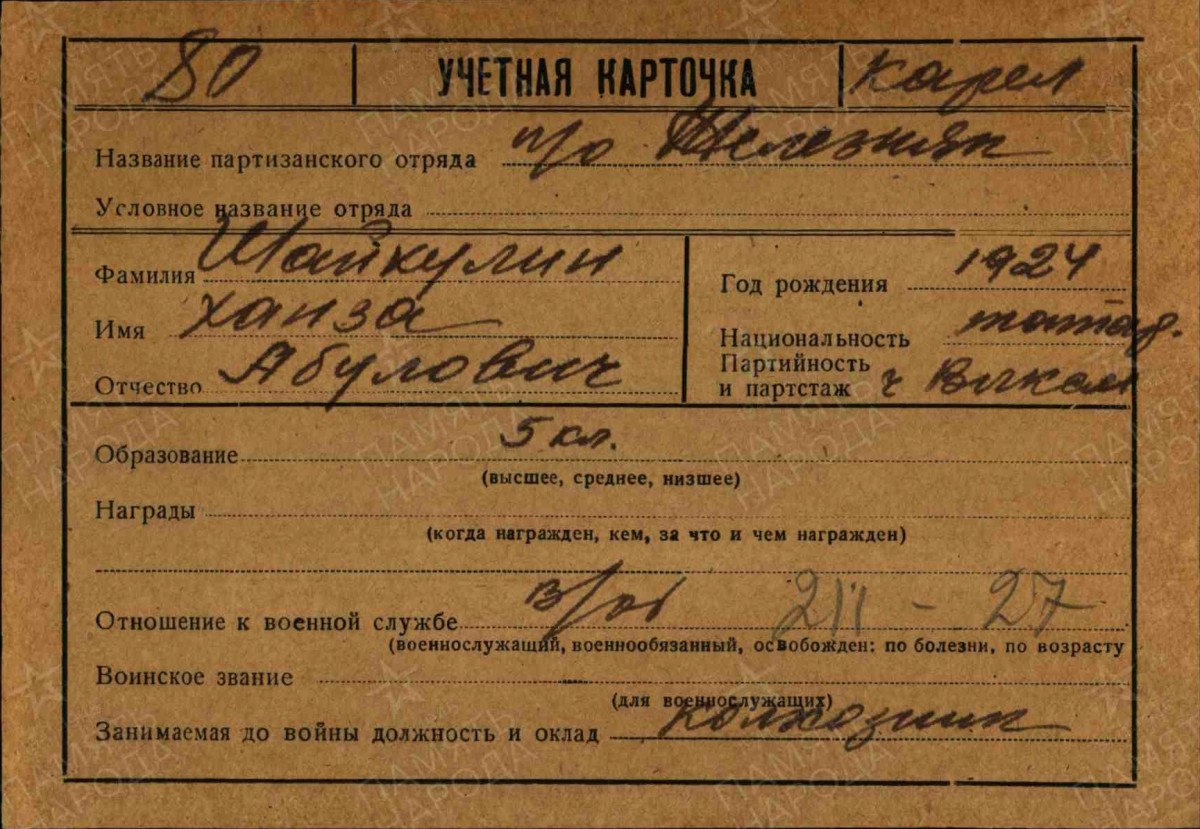 80 УЧЕТНАЯ КАРТОЧКА Карел
Название партизанского отряда п/о Железняк
Условное название отряда
Фамилия Шайкулин
Имя Ханза
Отчество Абулович
Год рождения 1924
Национальность татар.
Партийность
и партстаж ч ВЛКСМ
Образование 5 кл.
(высшее, среднее, низшее)
Награды
(когда награжден, кем, за что и чем награжден)
Отношение к военной службе в/об 211 - 27
(военнослужащий, военнообязанный, освобожден: по болезни, по возрасту
Воинское звание
(для военнослужащих)
Занимаемая до войны должность и оклад колхозник
ПАМЯТЬ НАРОДА